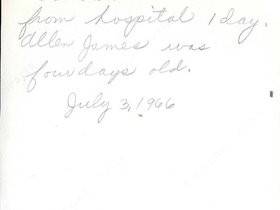 from hospital 1 day.
Allen James was
four days old.
July 3, 1966